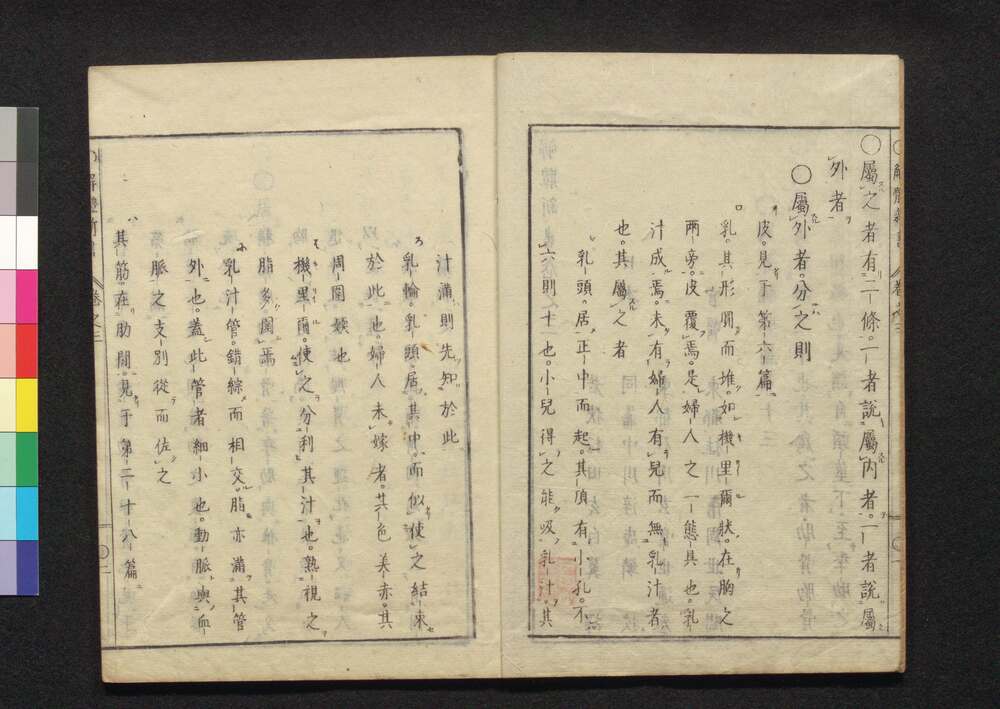 ○屬之者有二條一者說屬內者一者說屬
外者
○屬外者分之則
皮見于第六篇
乳其形圓而堆如機里爾狀在胸之
兩旁皮覆焉是婦人之一態具也乳
汁成焉未有婦人有兒而無乳汁者
也其屬之者
乳頭居正中而起其頂有小孔不
六則十一也小兒得之能吸乳汁其
汁滿則先知於此
乳輪乳頭居其中而似使之結束
於此也婦人未嫁者其色美赤其
周圍娛也
機里爾使之分利其汁也熟視之
乳汁管錯綜而相交脂亦滿其管
外也蓋此管者細小也動脈與血
脈之支別從而佐之
其筋在肋間見于第二十八篇
解體新書 卷之三